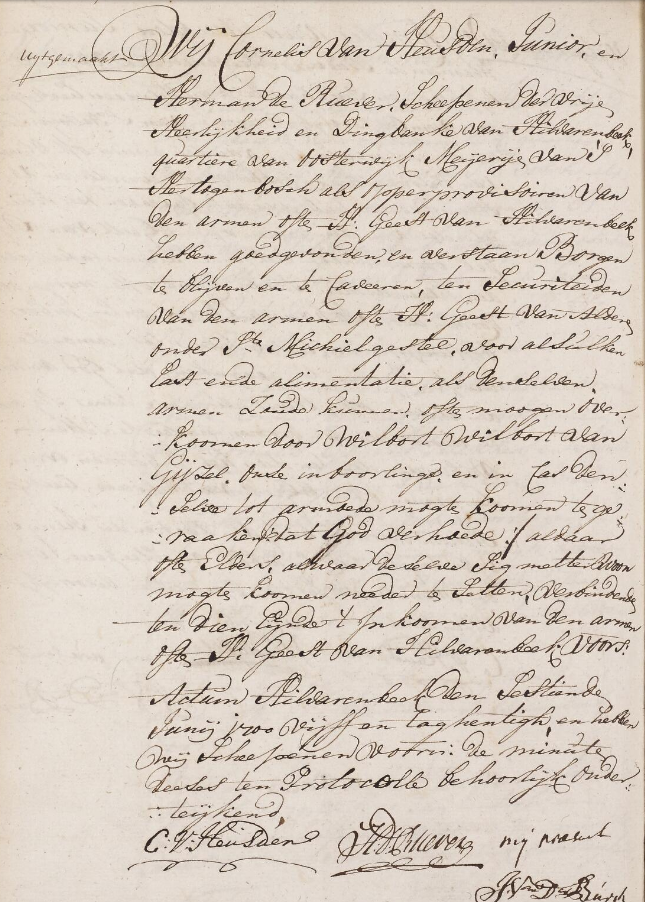 uytgemaakt
Wij Cornelis van Heusden, Junior, en
Herman de Ruever, Scheepenen der vrije
Heerlijkheid en Dingbanke van Hilvarenbeek,
quartiere van Oosterwijk Meijerije van S
Hertogenbosch als opperprovisoiren van
den armen ofte H: Geest van Hilvarenbeek
hebben goedgevonden, en verstaan Borgen
te blijven en te Caveeren, ten Securiteiden
van den armen ofte H: Geest van
onder Ste Michielgestel, voor alsulken
last ende alimentatie, als denselven
armen Zoude kunnen, ofte moogen over-
:koomen door Wilbort Wilbort van
Gijzel, onse inboorlinge, en in Cas den:
:selve tot armoede mogte koomen te ge:
:raaken /: dat God verhoede :/ aldaar
ofte Elders, alwaar deselve Sig metter Woon
mogte koomen needer te Setten, verbindende
ten dien Eynde 't Inkoomen van den armen
ofte H: Geest van Hilvarenbeek voors:
Actum Hilvarenbeek den Sestiende
Junij 1700 Vijff en taghentigh, en hebben
wij Scheepenen voorn: de minute
deeses ten Protocolle behoorlijk onder:
:teijkend,
C: V: Heusden HD Ruever mij present